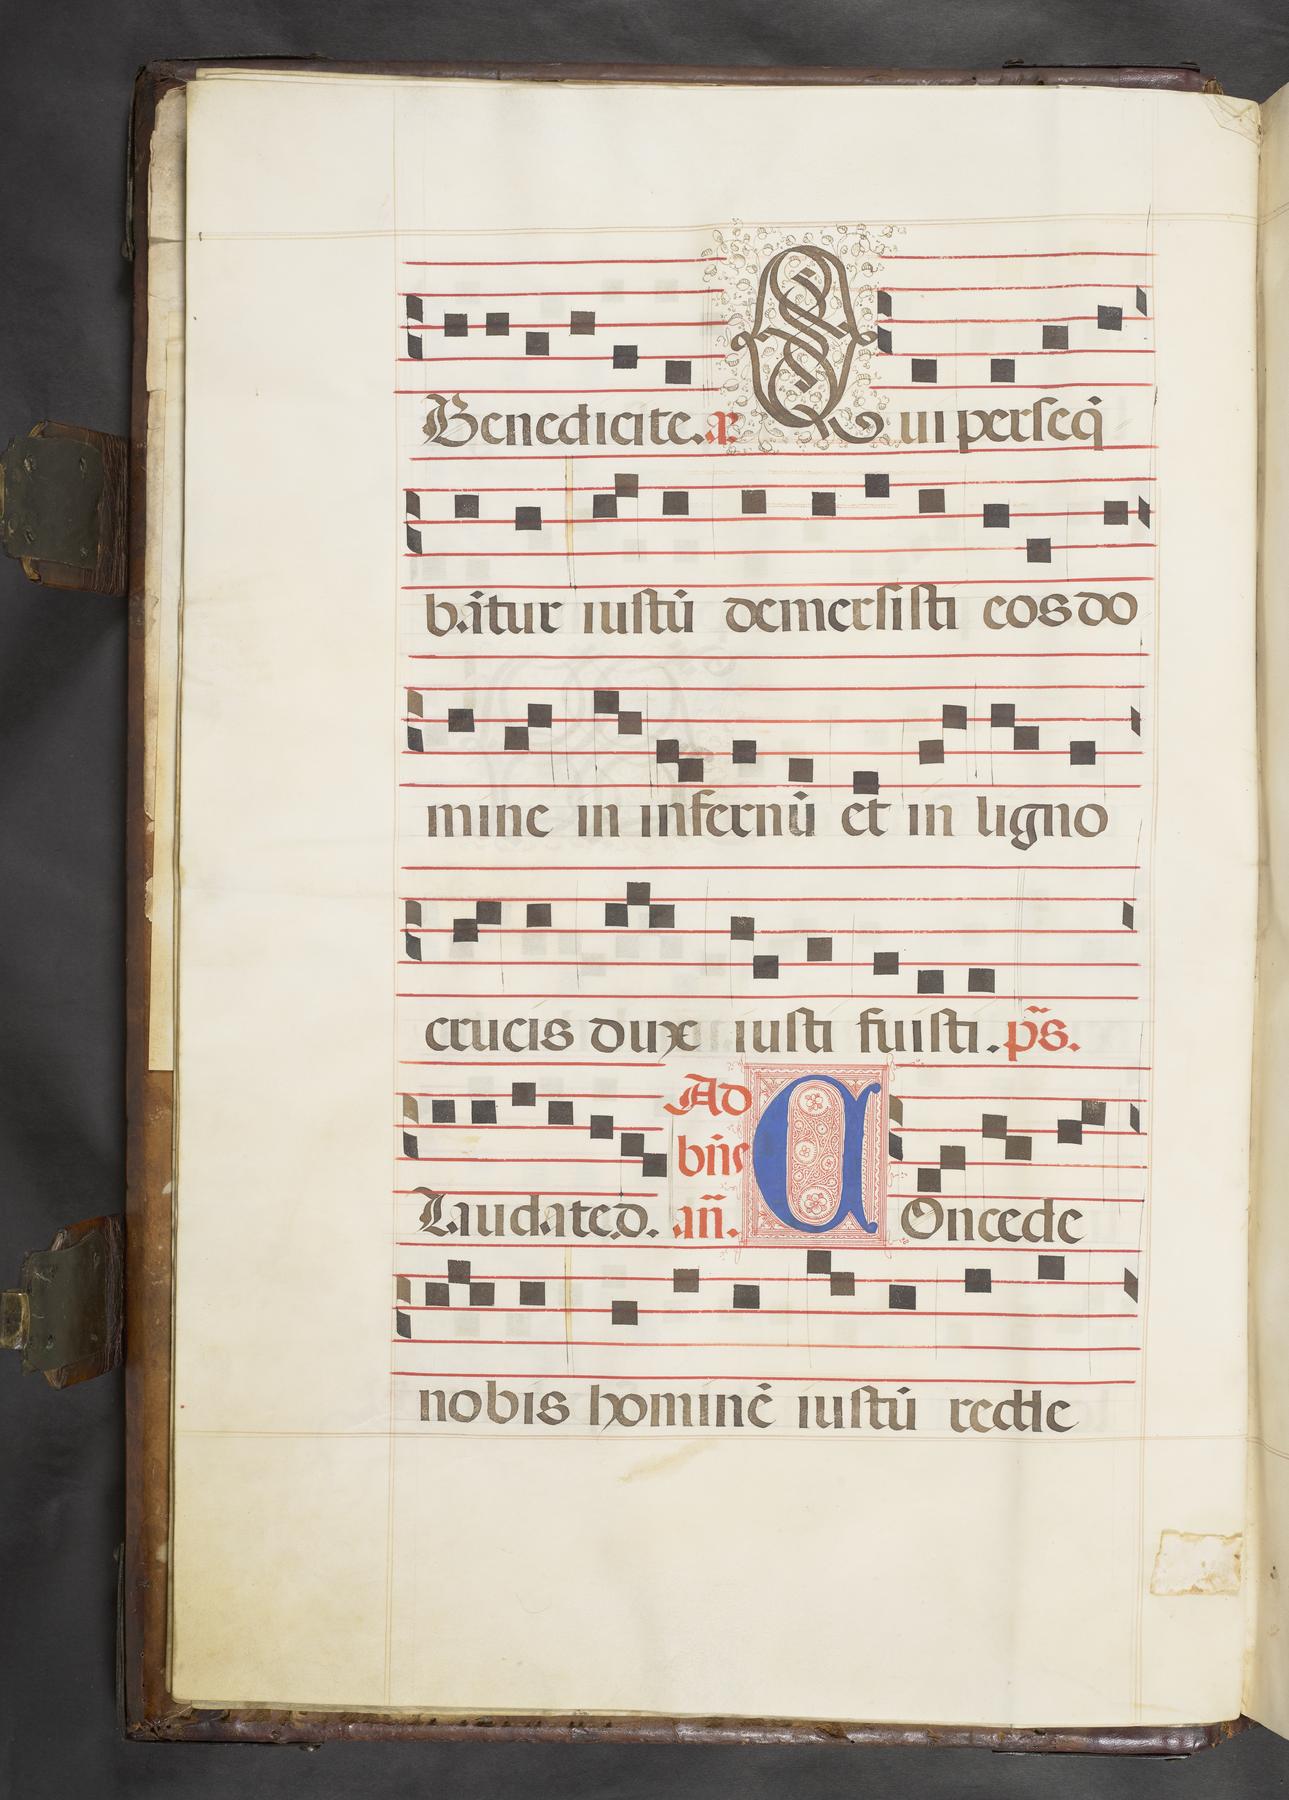 Benedicite. a. Qui perseq̃
bãtur iustũ demersisti eos do
mine in infernũ et in ligno
crucis dux iusti fuisti. p̃s.
Laudate.d. Ad bñe añ. Concede
nobis hominẽ iustũ redde